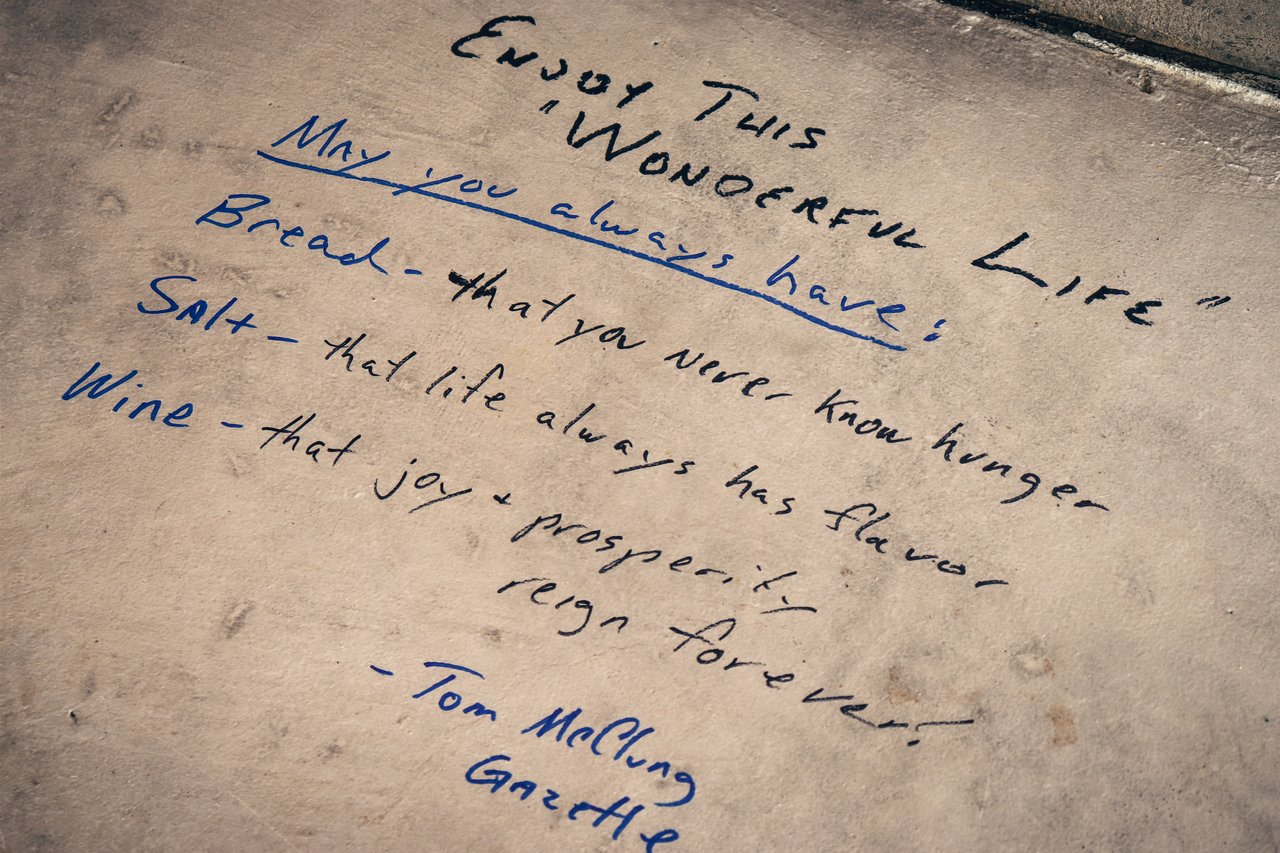 Enjoy This
"Wonderful Life"
May you always have:
Bread - that you never know hunger
Salt - that life always has flavor
Wine - that joy + prosperity
reign forever!
- Tom McClung
Gazette